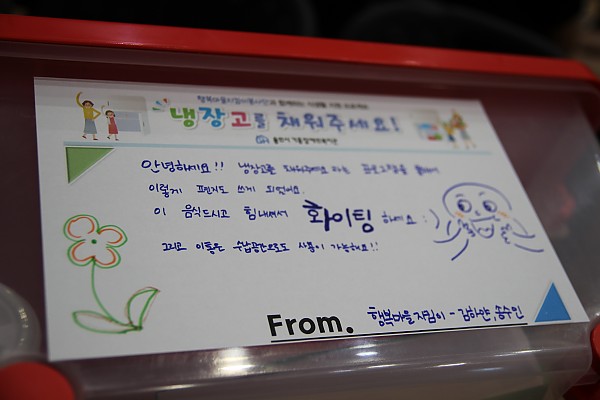 행복마을지킴이봉사단과 함께하는 식생활 지원 프로젝트
냉장고를 채워주세요!
울산시 기장장애인복지관
안녕하세요!! 냉장고를 채워주세요 라는 프로그램을 통해서
이렇게 편지도 쓰게 되었어요.
이 음식드시고 힘내셔서 화이팅 하세요 :)
그리고 이통은 수납공간으로도 사용이 가능해요!!
From. 행복마을지킴이 - 김하얀, 송수인